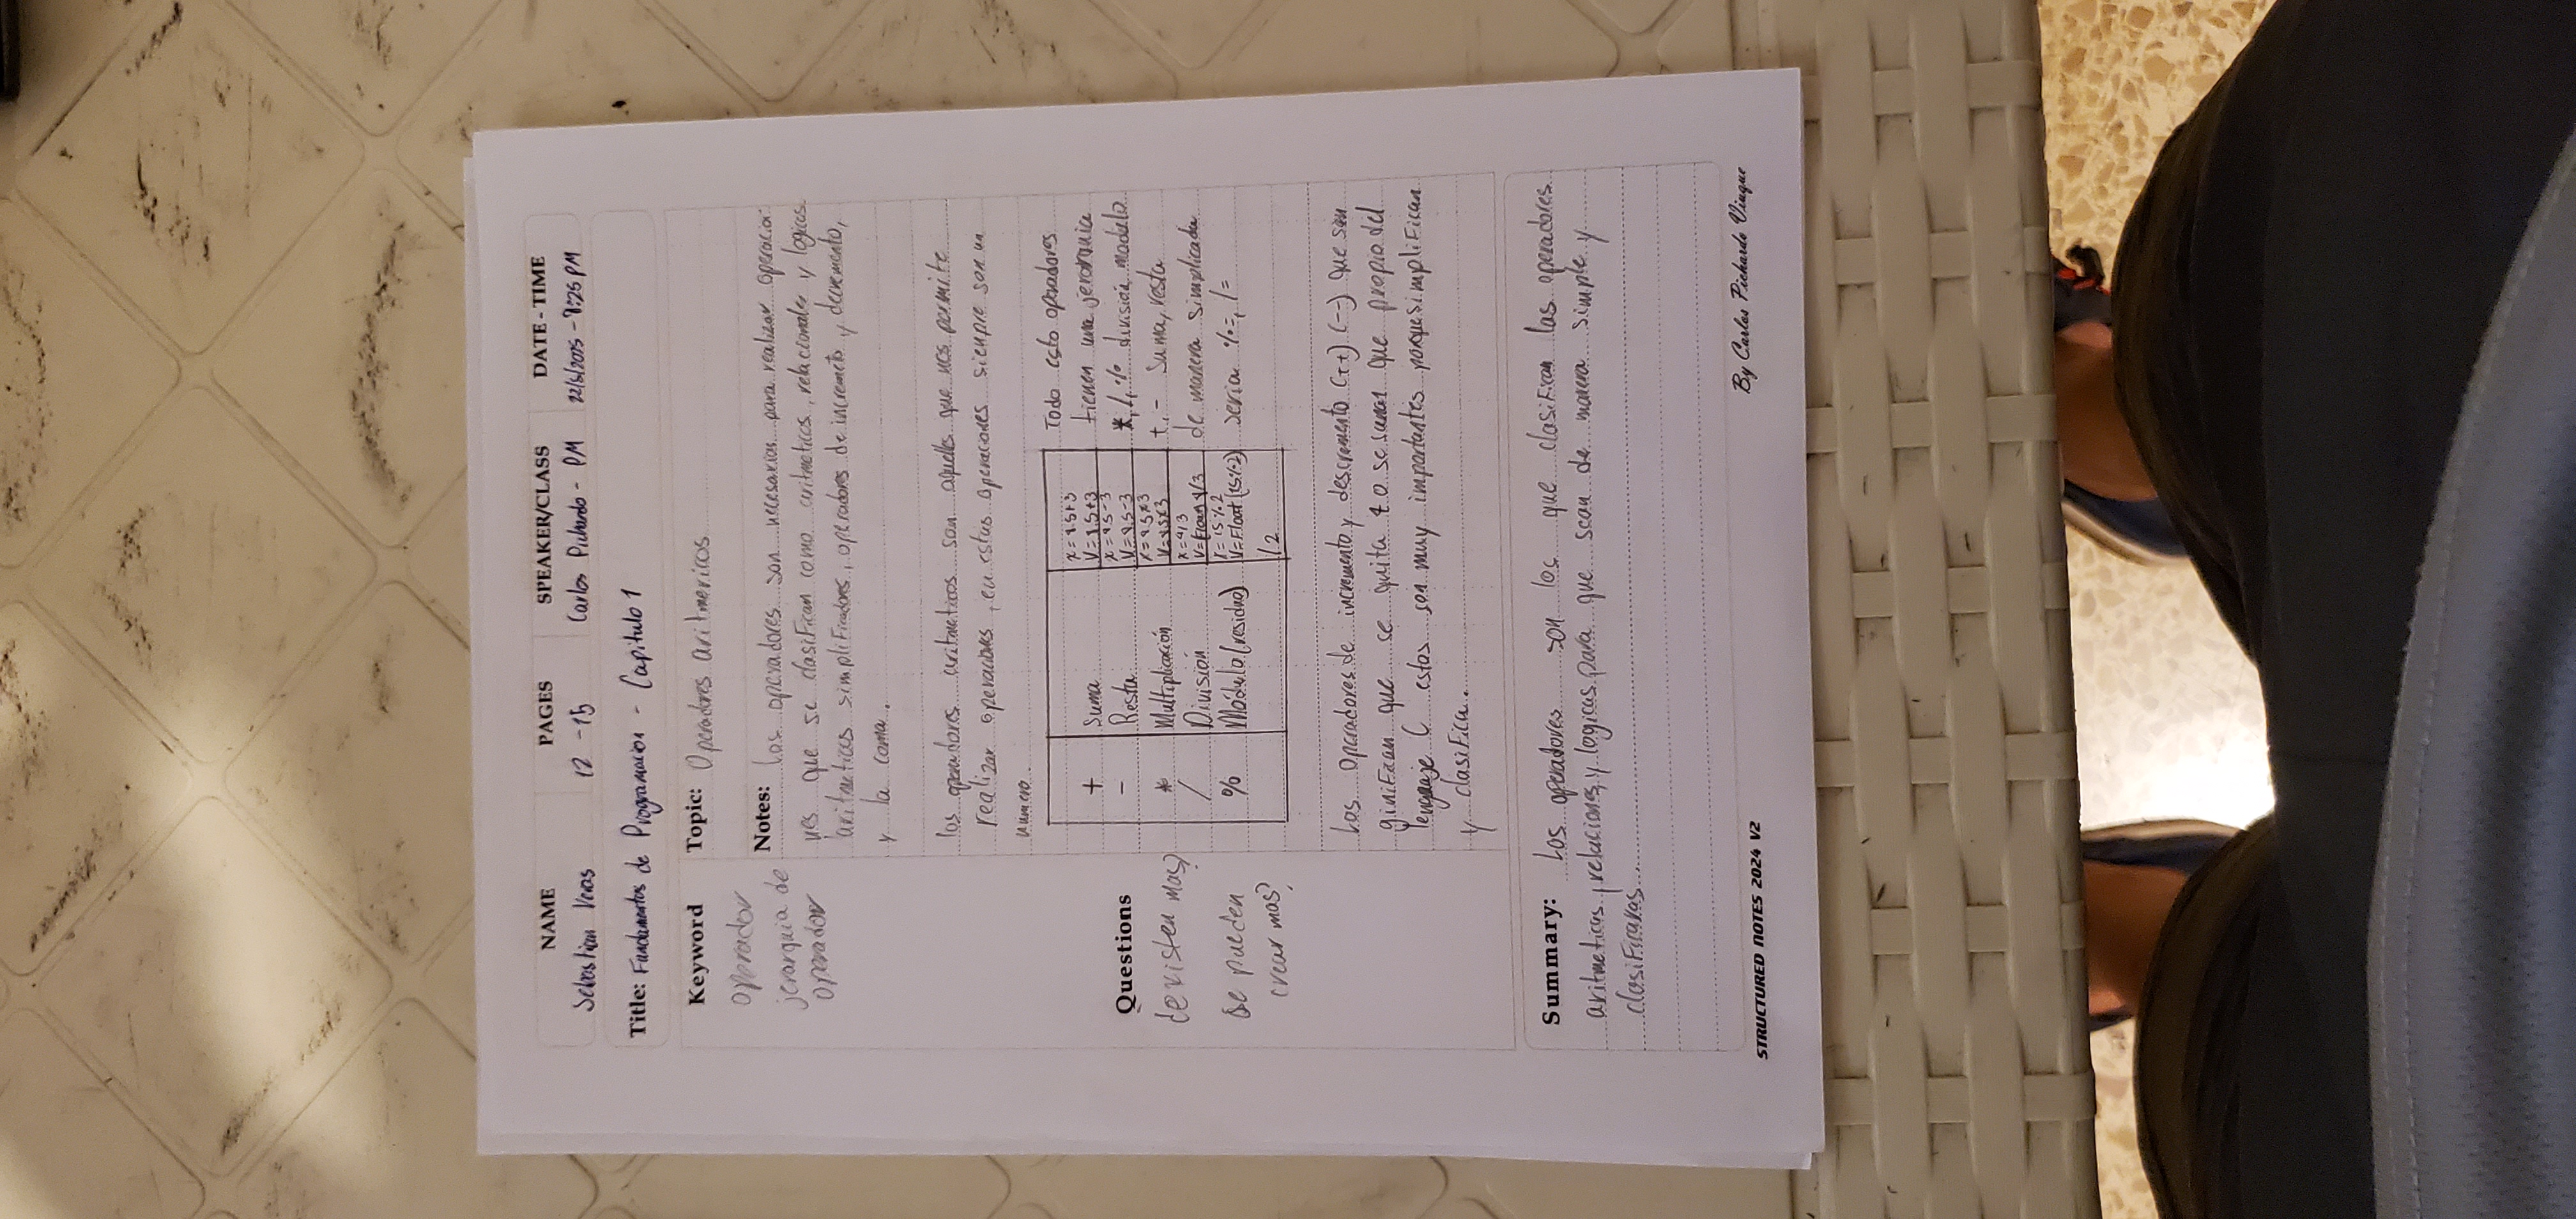 NAME PAGES SPEAKER/CLASS DATE - TIME
Sebastian Veras 12 - 15 Carlos Pichardo - PM 22/5/2025 - 8:25 PM
Title: Fundamentos de Programacion - Capitulo 1
Keyword
operador
jerarquia de
operador
Topic: Operadores aritmericos
Notes: Los operadores son necesarios para realizar operacio-
nes que se clasifican como aritmeticos, relacionales y logicos
aritmeticos simplificadores, operadores de incremeto y decremento,
y la coma.
los operadores aritmeticos son aquellos que nos permite
realizar operaciones, en estas operaciones siempre son un
numero.
+ Suma x=8.5+3
V=8.5+3
- Resta x=8.5-3
V=8.5-3
* Multiplicación x=8.5*3
V=8.5*3
/ División x=4/3
V=Float 4/3
% Módulo (residuo) x=15%2
V=Float (15%2)
/2
Todo esto operadores
tienen una jerarquia
*, /, % división, modulo
+, - Suma, resta
de manera simplicada
seria %=, /=
Questions
¿existen mas?
Se pueden
crear mas?
Los Operadores de incremento y descremento (++) (--) que son
ginifican que se quita 1 o se suma 1 que propio del
lenguaje C estos son muy importantes porque simplifican
y clasifica.
Summary: Los operadores son los que clasifican las operadores
aritmeticas, relaciones, y logicas para que sean de manera simple y
STRUCTURED NOTES 2024 V2
By Carlos Pichardo Viuque